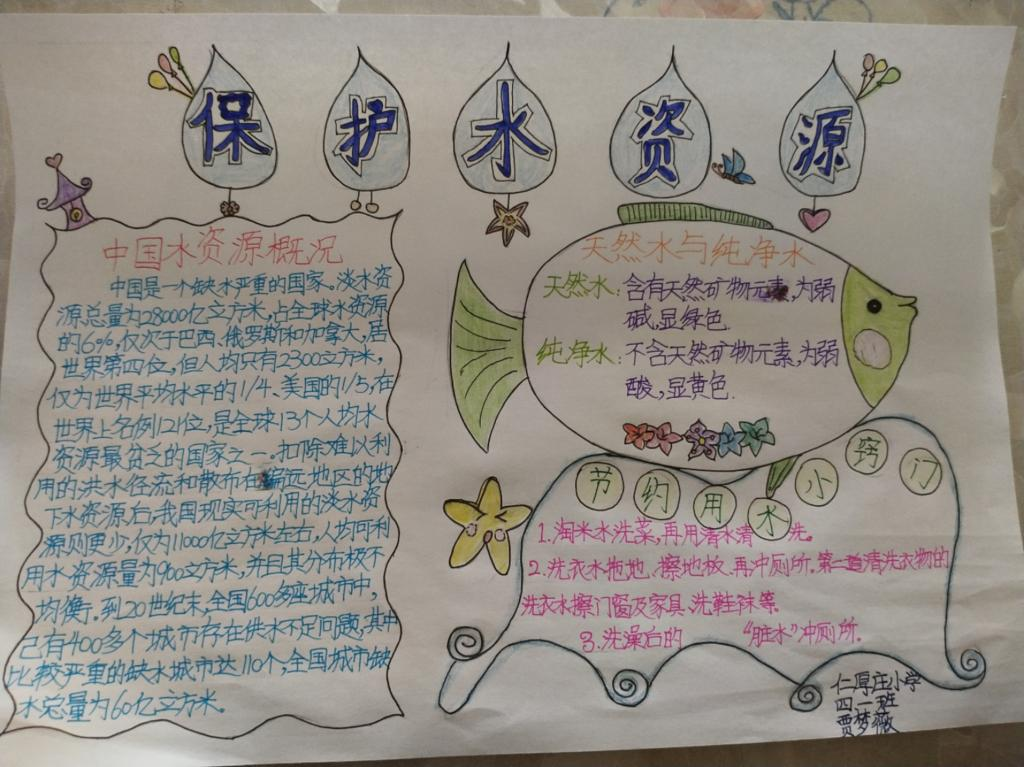 保护水资源
中国水资源概况
中国是一个缺水严重的国家。淡水资
源总量为28000亿立方米,占全球水资源
的6%,仅次于巴西、俄罗斯和加拿大,居
世界第四位,但人均只有2300立方米,
仅为世界平均水平的1/4、美国的1/5,在
世界上名例121位,是全球13个人均水
资源最贫乏的国家之一。扣除难以利
用的洪水径流和散布在偏远地区的地
下水资源后,我国现实可利用的淡水资
源则更少,仅为11000亿立方米左右,人均可利
用水资源量为900立方米,并且其分布极不
均衡。到20世纪末,全国600多座城市中,
已有400多个城市存在供水不足问题,其中
比较严重的缺水城市达110个,全国城市缺
水总量为60亿立方米。
天然水与纯净水
天然水:含有天然矿物元素,为弱
碱,显绿色.
纯净水:不含天然矿物元素,为弱
酸,显黄色.
节约用水小窍门
1.淘米水洗菜,再用清水清洗。
2.洗衣水拖地、擦地板、再冲厕所.第二道清洗衣物的
洗衣水擦门窗及家具、洗鞋袜等.
3.洗澡后的“脏水”冲厕所.
仁厚庄小学
四一班
贾梦薇